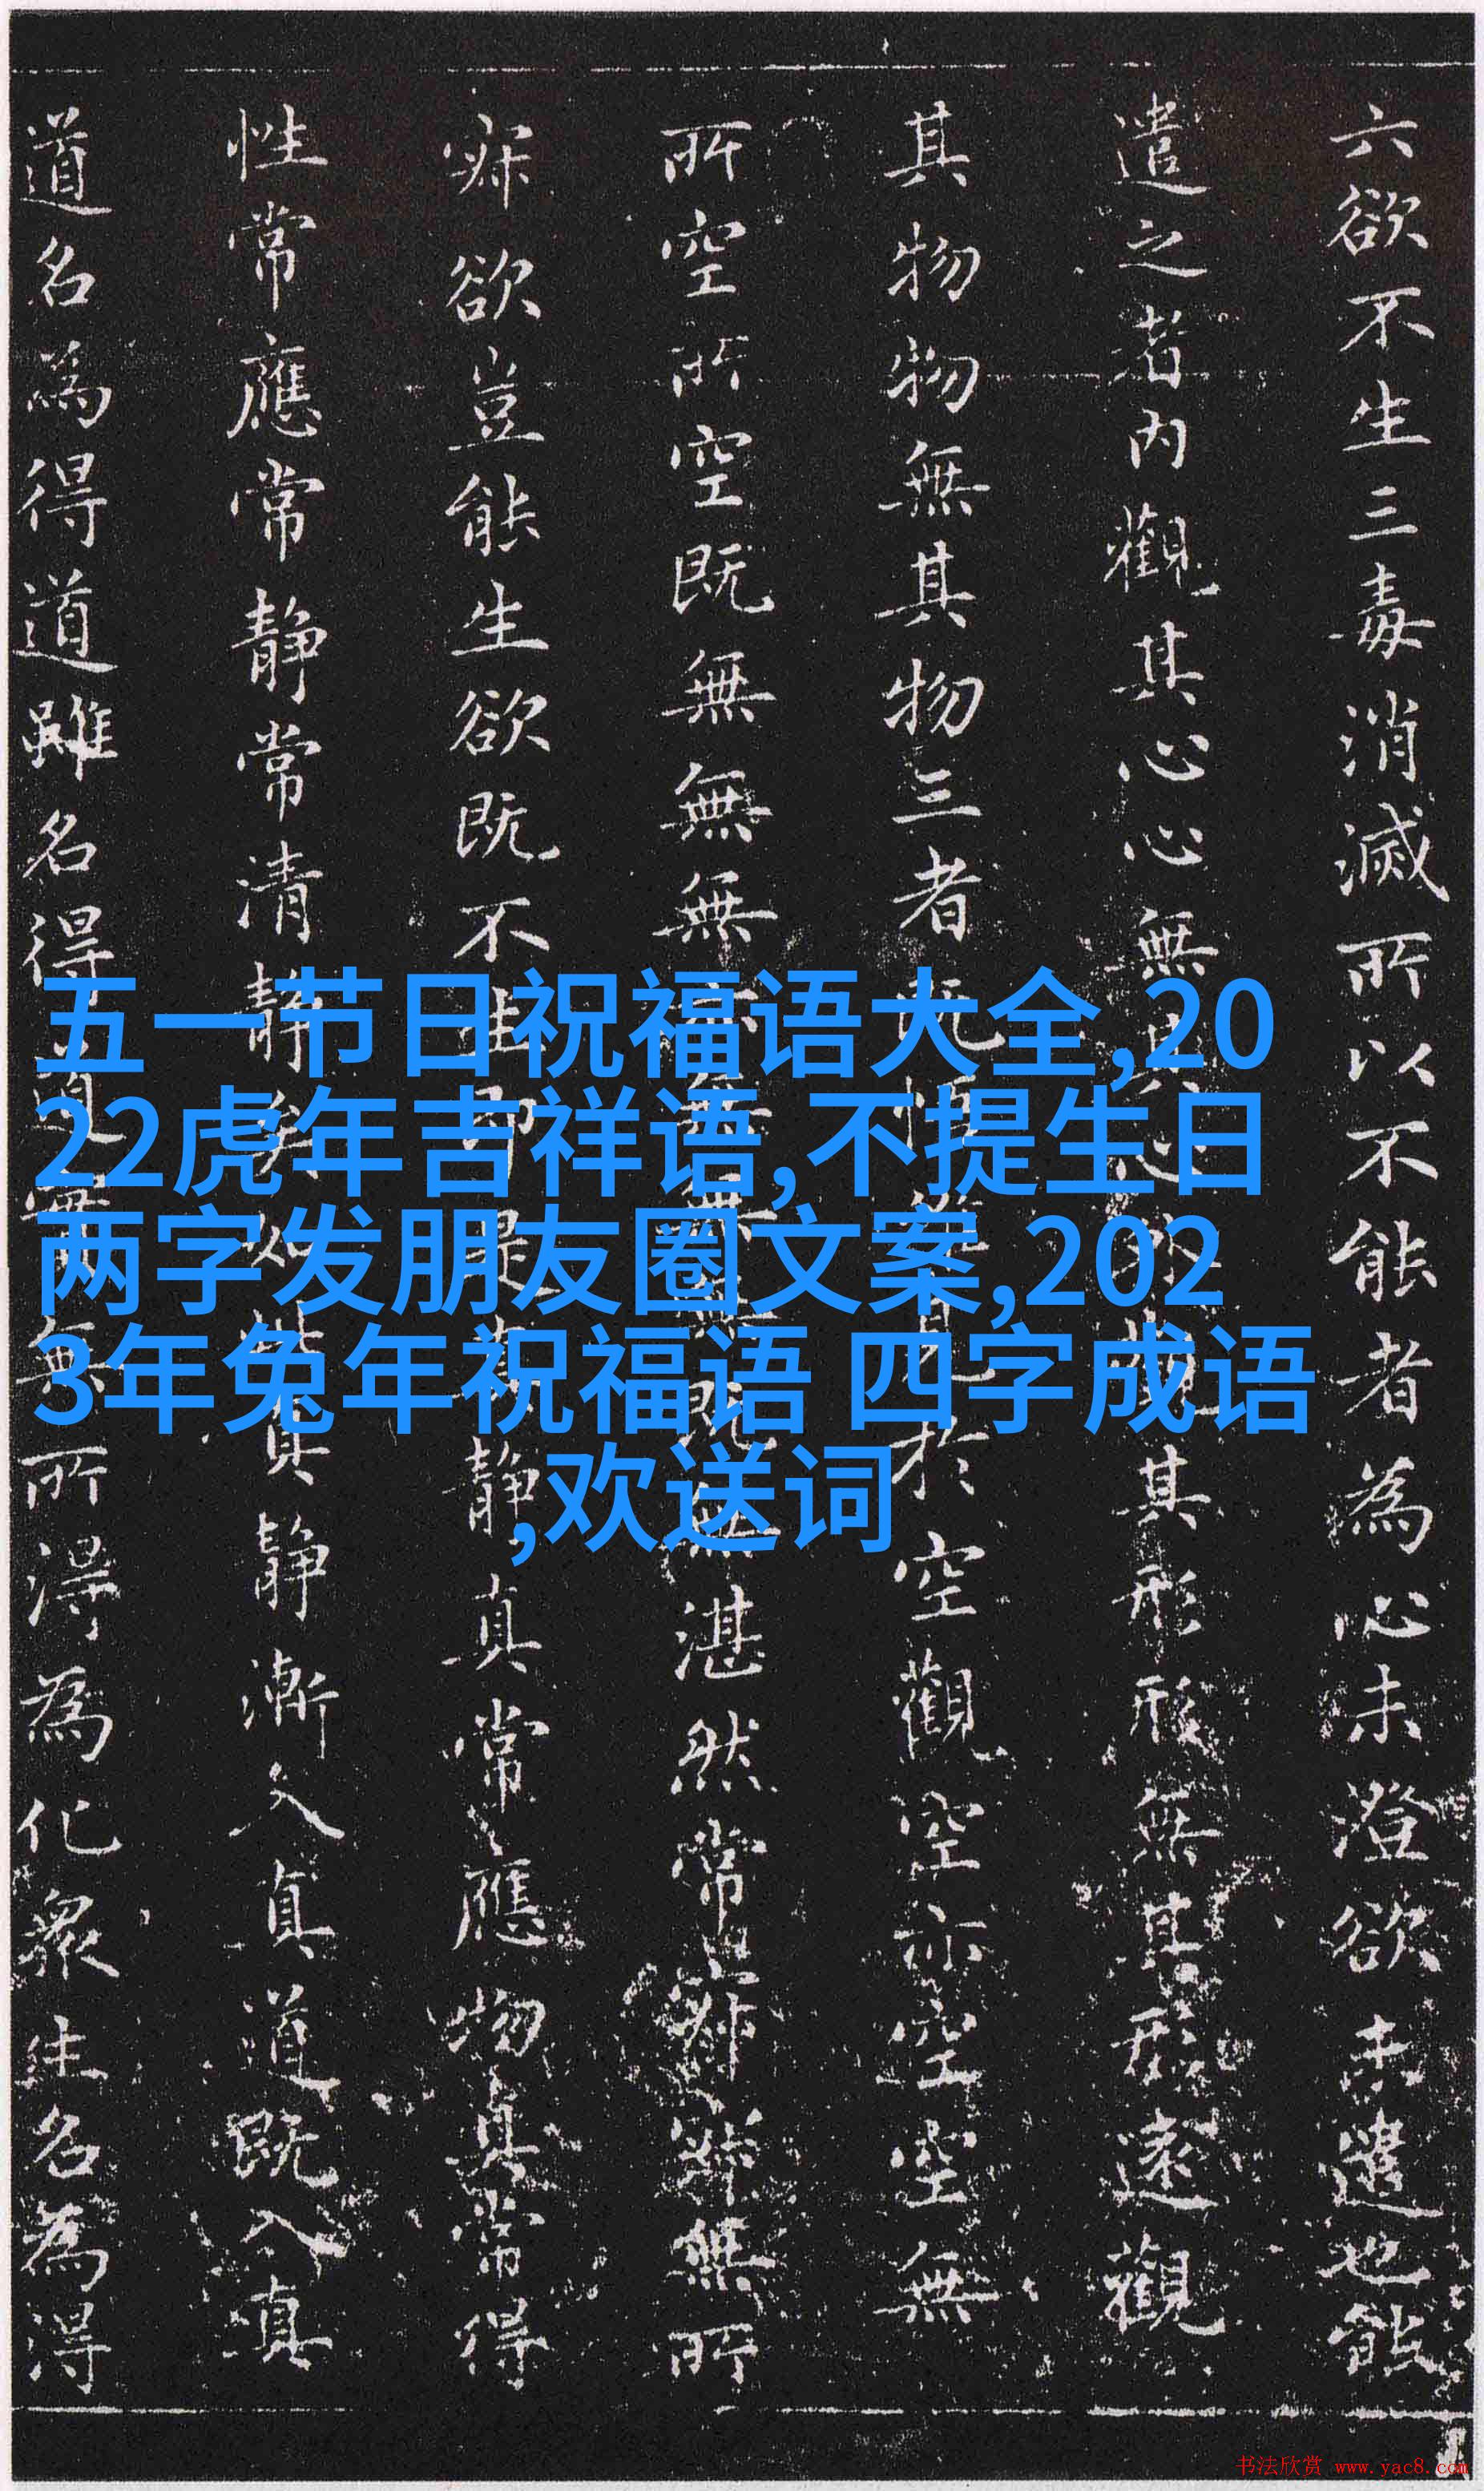 六欲不生三毒消滅所以不能者為心未澄欲未遣也能
遣之者内觀其心心無其心外觀其形形無其形遠觀
其物物無其物三者既悟唯見於空觀空亦空空無
所空所空既無無無亦無無無既無湛然常寂寂無所
寂欲豈能生欲既不生即是真静真常應物真常得
性常應常静常清静矣如此真静漸入真道既入真
道名為得道雖名得道實無所得為化衆生名為得
五一节日祝福语大全,20
22虎年吉祥语,不提生日
两字发朋友圈文案,202
3年兔年祝福语 四字成语
,欢送词
书法欣赏 www.yac8.com